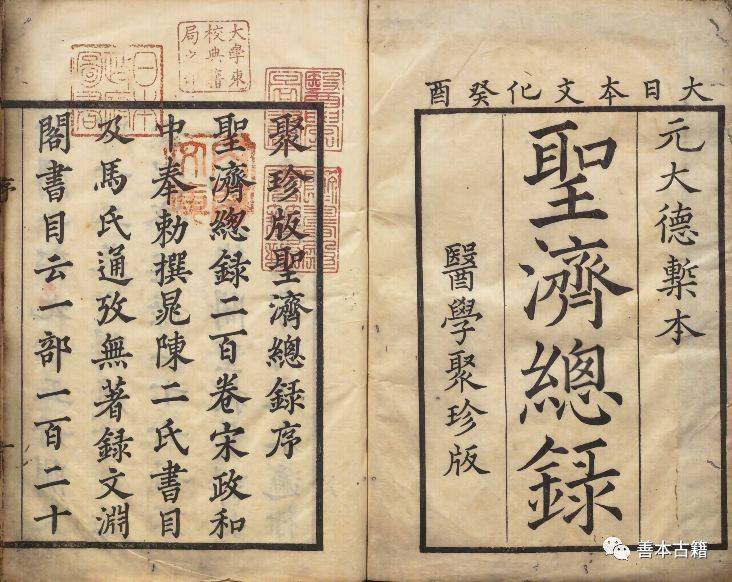 大日本文化癸酉
元大德槧本
聖濟總録
醫學聚珍版
聚珍版聖濟總録序
聖濟總録二百卷宋政和
中奉勅撰晁陳二氏書目
及馬氏通攷無著録文淵
閣書目云一部一百二十
序
大學東
校典籍
局之印
善本古籍